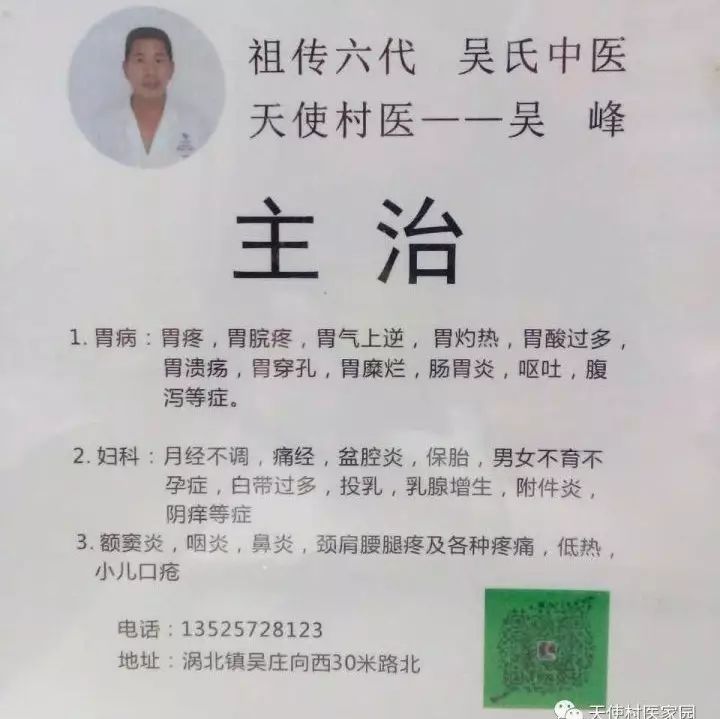 祖传六代 吴氏中医
天使村医——吴 峰
主 治
1. 胃病：胃疼，胃脘疼，胃气上逆， 胃灼热，胃酸过多，
胃溃疡，胃穿孔，胃糜烂，肠胃炎，呕吐，腹
泻等症。
2. 妇科：月经不调，痛经，盆腔炎，保胎，男女不育不
孕症，白带过多，投乳，乳腺增生，附件炎，
阴痒等症
3. 额窦炎，咽炎，鼻炎，颈肩腰腿疼及各种疼痛，低热，
小儿口疮
电话：13525728123
地址：涡北镇吴庄向西30米路北
天使村医家园